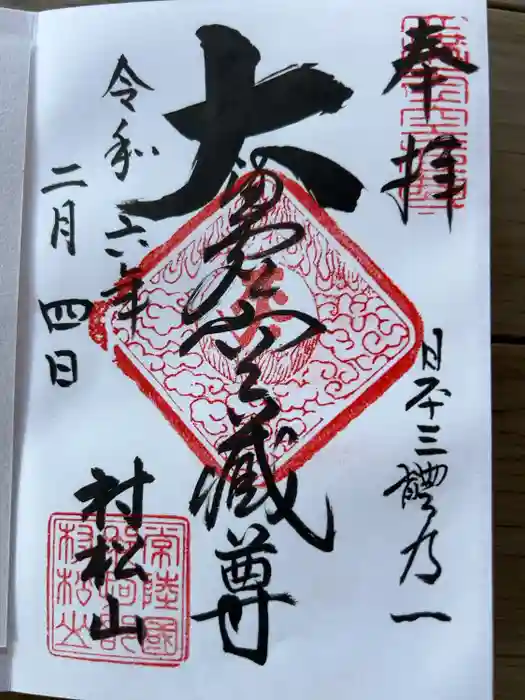 奉拝
日本三體乃一
大満虚空蔵尊
村松山
令和六年
二月四日
常陸國
村松山